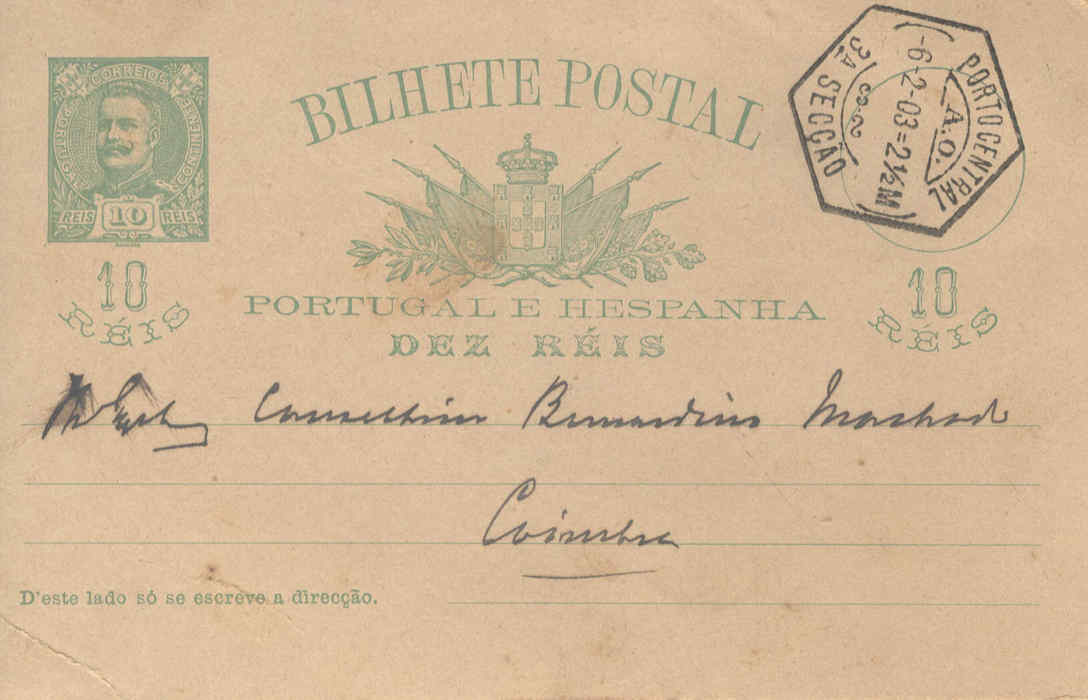 CORREIOS
PORTUGAL
REIS 10 REIS
BILHETE POSTAL
PORTO CENTRAL
A.O.
(-6-2-03=2½M)
3A SECÇÃO
10
RÉIS
10
RÉIS
PORTUGAL E HESPANHA
DEZ RÉIS
Conselheiro Bernardino Machado
Coimbra
D'este lado só se escreve a direcção.